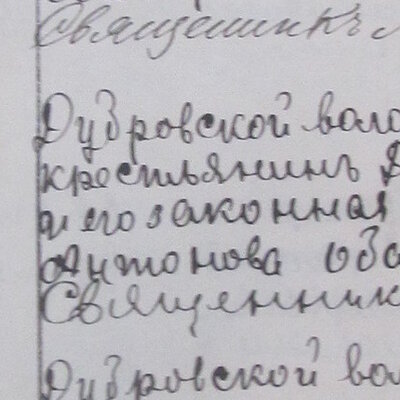 Священникъ
Дубровской воло
крестьянинъ
и его законная
Антонова оба
Священник
Дубровской вол